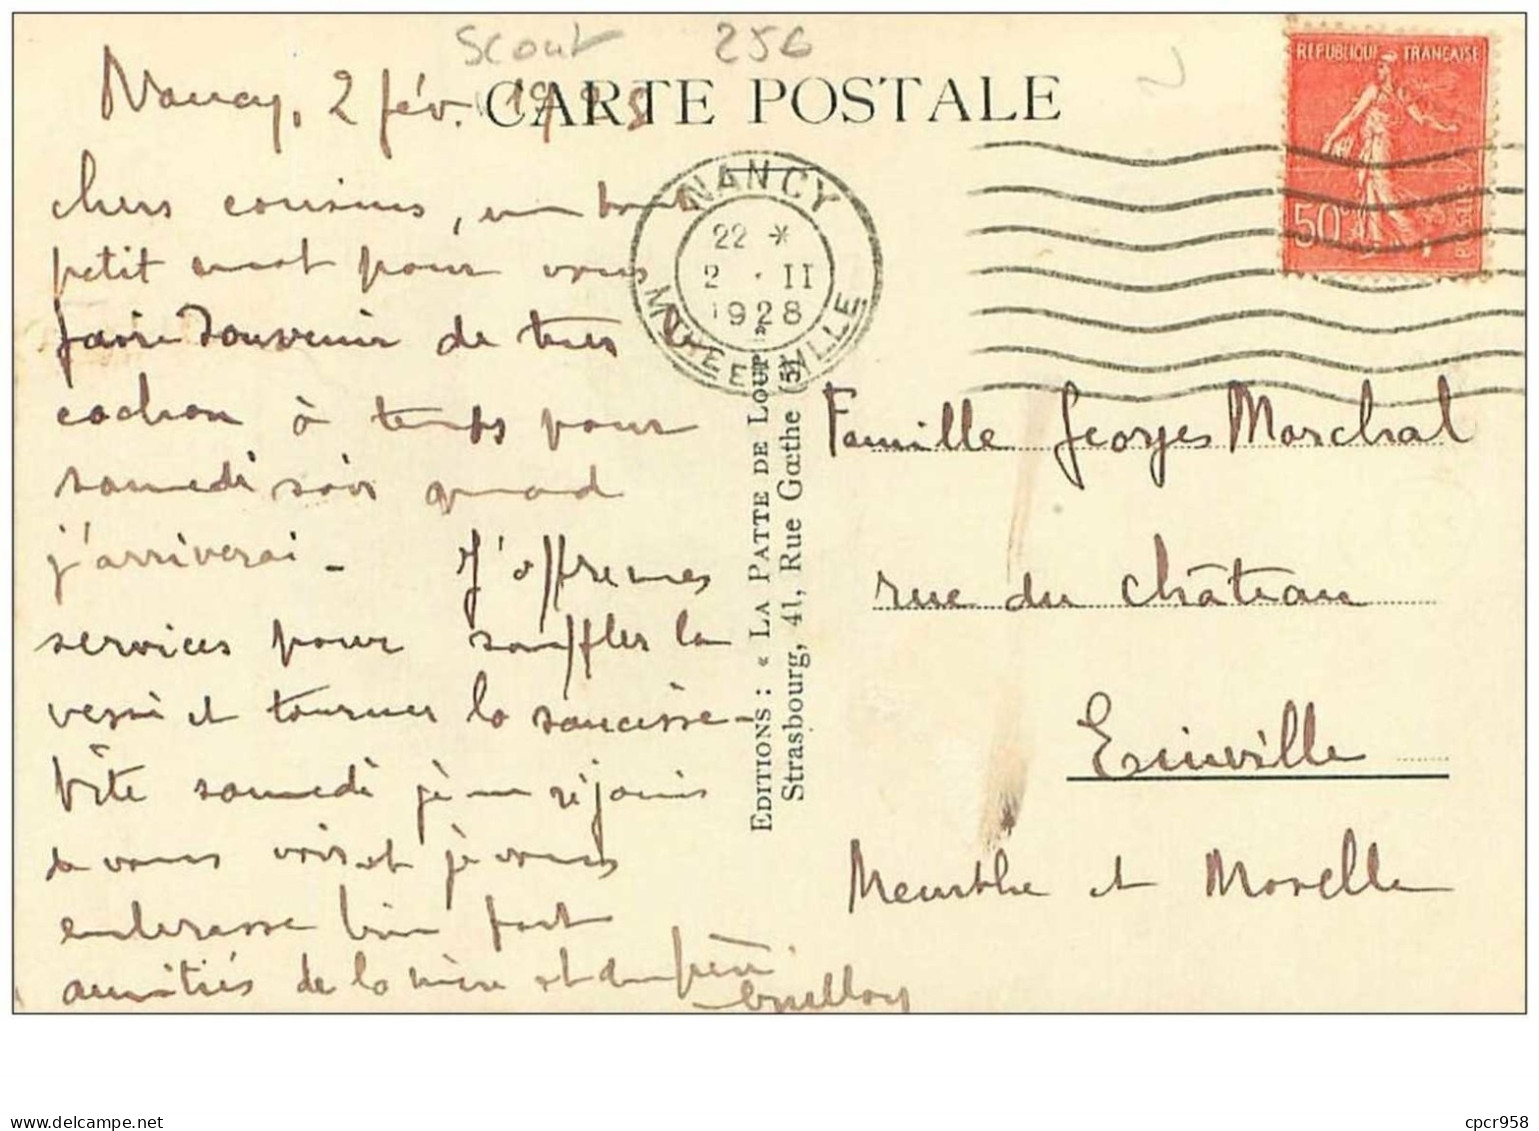 Scout 256
CARTE POSTALE
Nancy, 2 fév. 1928
chers cousins, un bout
petit mot pour vous
faire souvenir de tuer le
cochon à temps pour
samedi soir quand
j'arriverai - J'offre mes
services pour souffler la
vessie et tourner la saucisse -
Vite samedi je me réjouis
de vous voir et je vous
embrasse bien fort
amitiés de la mère et du père
REPUBLIQUE FRANÇAISE
50c
POSTES
NANCY
22 *
2 . II
1928
MTHE ELLE
EDITIONS : « LA PATTE DE LOUP »
Strasbourg, 41, Rue Gœthe (5)
Famille Georges Marchal
rue du château
Einville
Meurthe et Moselle
cpcr958